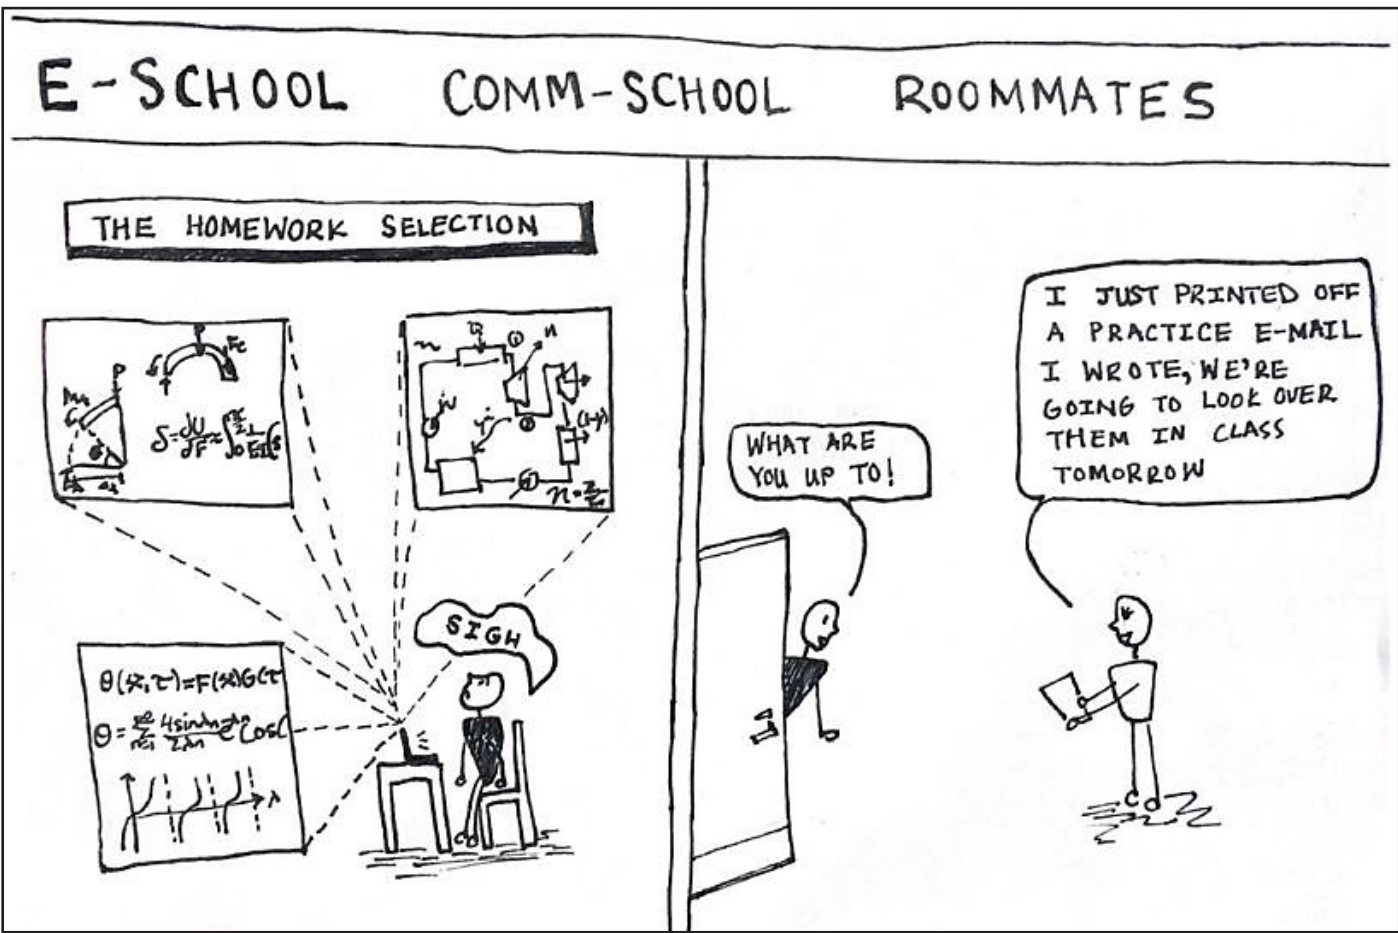 E-SCHOOL COMM-SCHOOL ROOMMATES
THE HOMEWORK SELECTION
SIGH
WHAT ARE
YOU UP TO!
I JUST PRINTED OFF
A PRACTICE E-MAIL
I WROTE, WE'RE
GOING TO LOOK OVER
THEM IN CLASS
TOMORROW